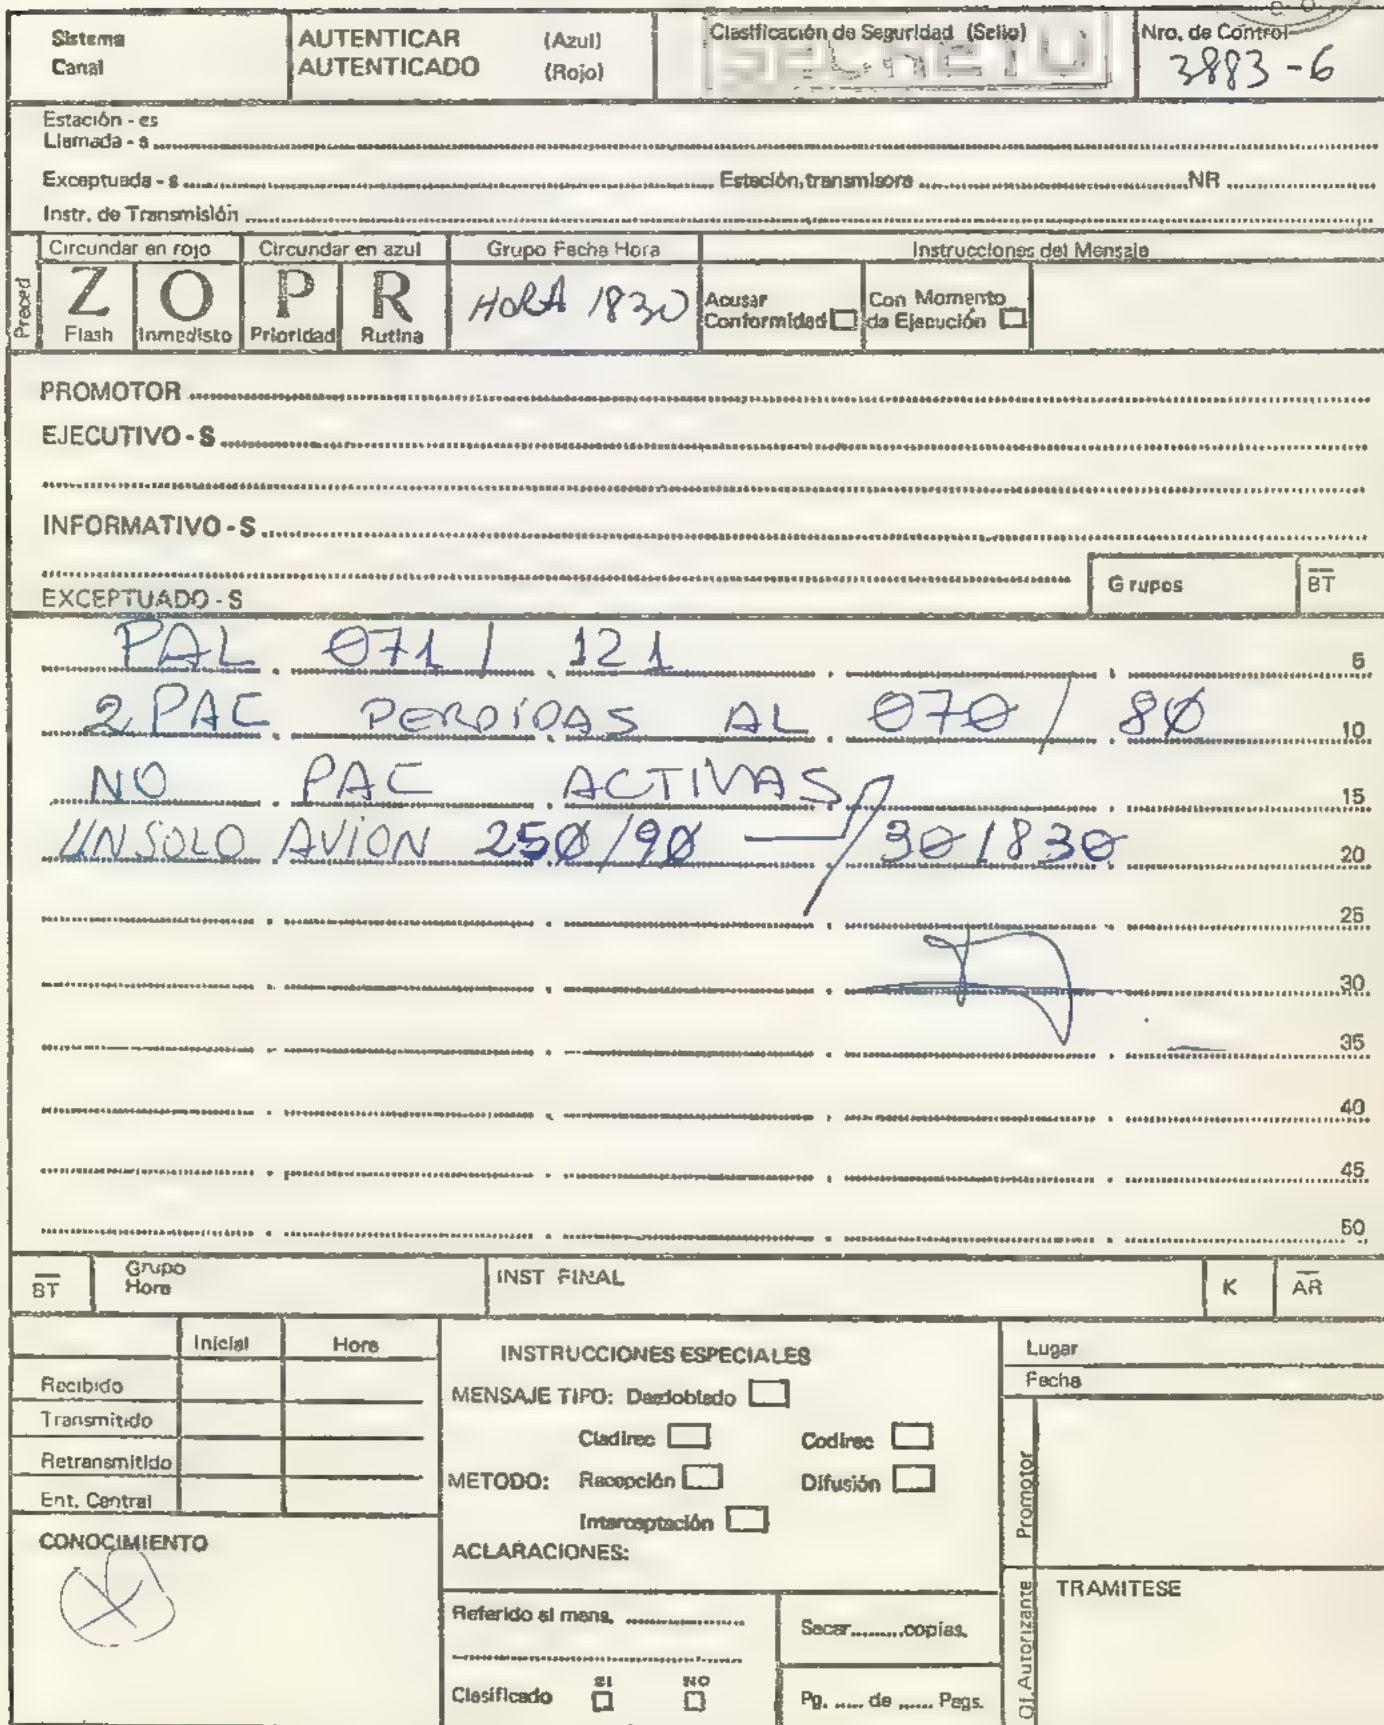 Sistema
Canal
AUTENTICAR (Azul)
AUTENTICADO (Rojo)
Clasificación de Seguridad (Sello)
SECRETO
Nro. de Control
3883-6
Estación - es
Llamada - s
Exceptuada - s Estación transmisora NR
Instr. de Transmisión
Preced
Circundar en rojo Circundar en azul Grupo Fecha Hora Instrucciones del Mensaje
Z O P R
Flash Inmediato Prioridad Rutina
HORA 1830
Acusar
Conformidad
Con Momento
de Ejecución
PROMOTOR
EJECUTIVO - S
INFORMATIVO - S
EXCEPTUADO - S
Grupos BT
PAL 071 / 121 5
2 PAC PERDIDAS AL 070 / 80 10
NO PAC ACTIVAS 15
UN SOLO AVION 250/90 — / 301830 20
25
30
35
40
45
50
BT Grupo
Hora
INST FINAL K AR
Inicial Hora
Recibido
Transmitido
Retransmitido
Ent. Central
CONOCIMIENTO
INSTRUCCIONES ESPECIALES
MENSAJE TIPO: Desdoblado
Cladirec Codirec
METODO: Recepción Difusión
Interceptación
ACLARACIONES:
Referido al mens.
Clasificado SI NO
Sacar copias.
Pg. de Pags.
Lugar
Fecha
Promotor
Of. Autorizante
TRAMITESE